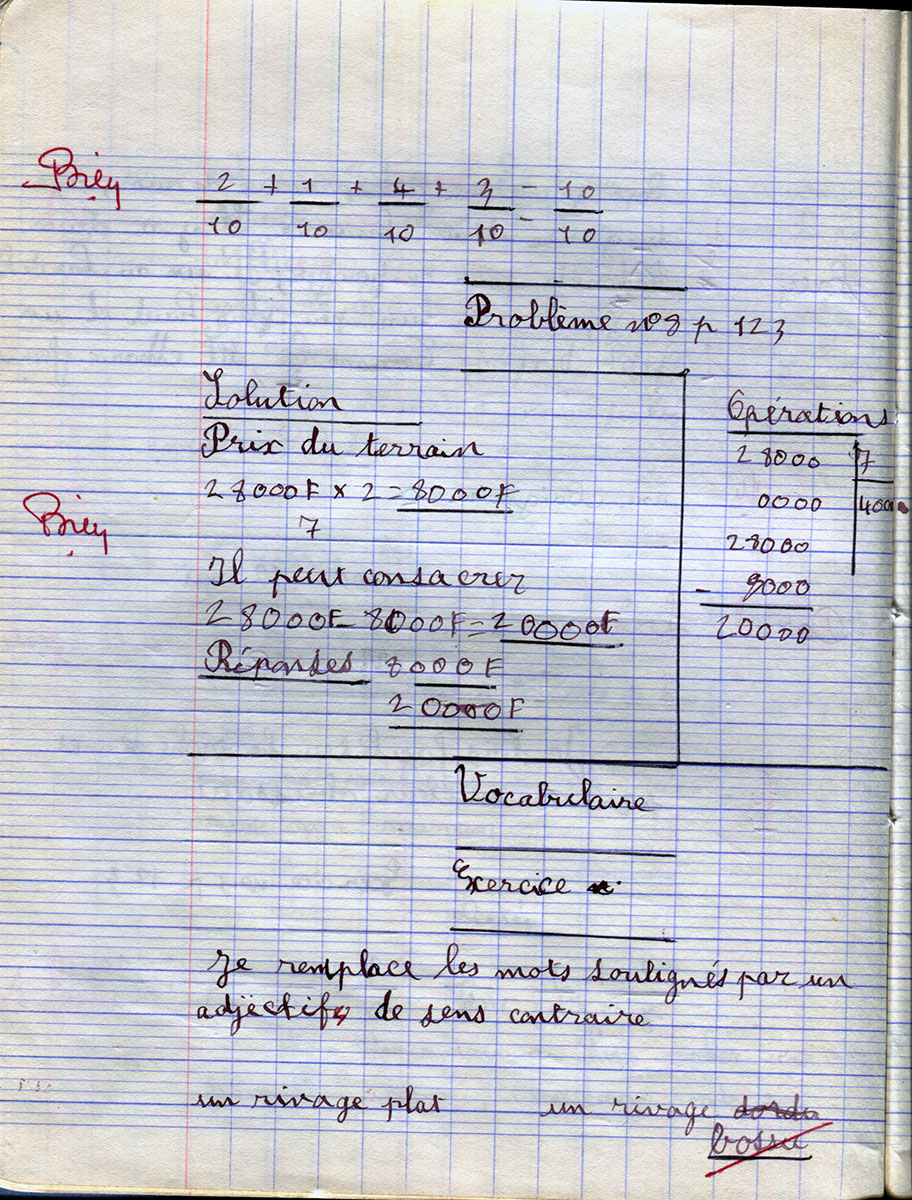 Bien
2/10 + 1/10 + 4/10 + 3/10 = 10/10
Problème n°8 p 123
Solution
Opérations
Prix du terrain
28000 | 7
28000F x 2 = 8000F
0000 | 4000
7
Bien
28000
Il peut consacrer
- 8000
28000F - 8000F = 20000F
20000
Réponses 8000F
20000F
Vocabulaire
Exercice
Je remplace les mots soulignés par un
adjectif de sens contraire
un rivage plat un rivage
bossu